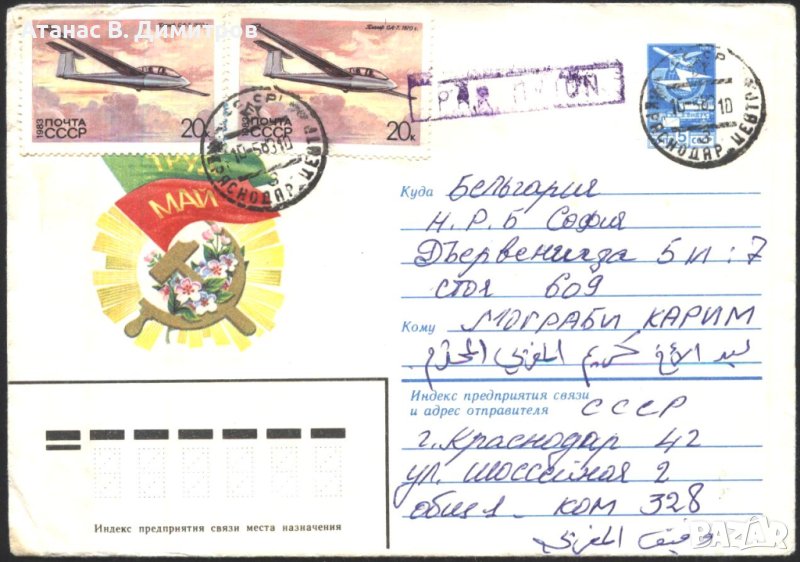 Атанас В. Димитров
1983 ПОЧТА СССР 20к
Планер БК-7, 1970 г.
1983 ПОЧТА СССР 20к
PAR AVION
КРАСНОДАР ЦЕНТР
КРАСНОДАР ЦЕНТР
ТРУД
МАЙ
Куда Бельгария
Н.Р.Б София
Дъервенизда 5 п : 7
стоя 609
Кому МОГРАБИ КАРИМ
كريم المغربي المحترم
Индекс предприятия связи
и адрес отправителя СССР
г. Краснодар 42
ул. шоссейная 2
общ 1 - ком 328
المغربي
Индекс предприятия связи места назначения
BAZAR